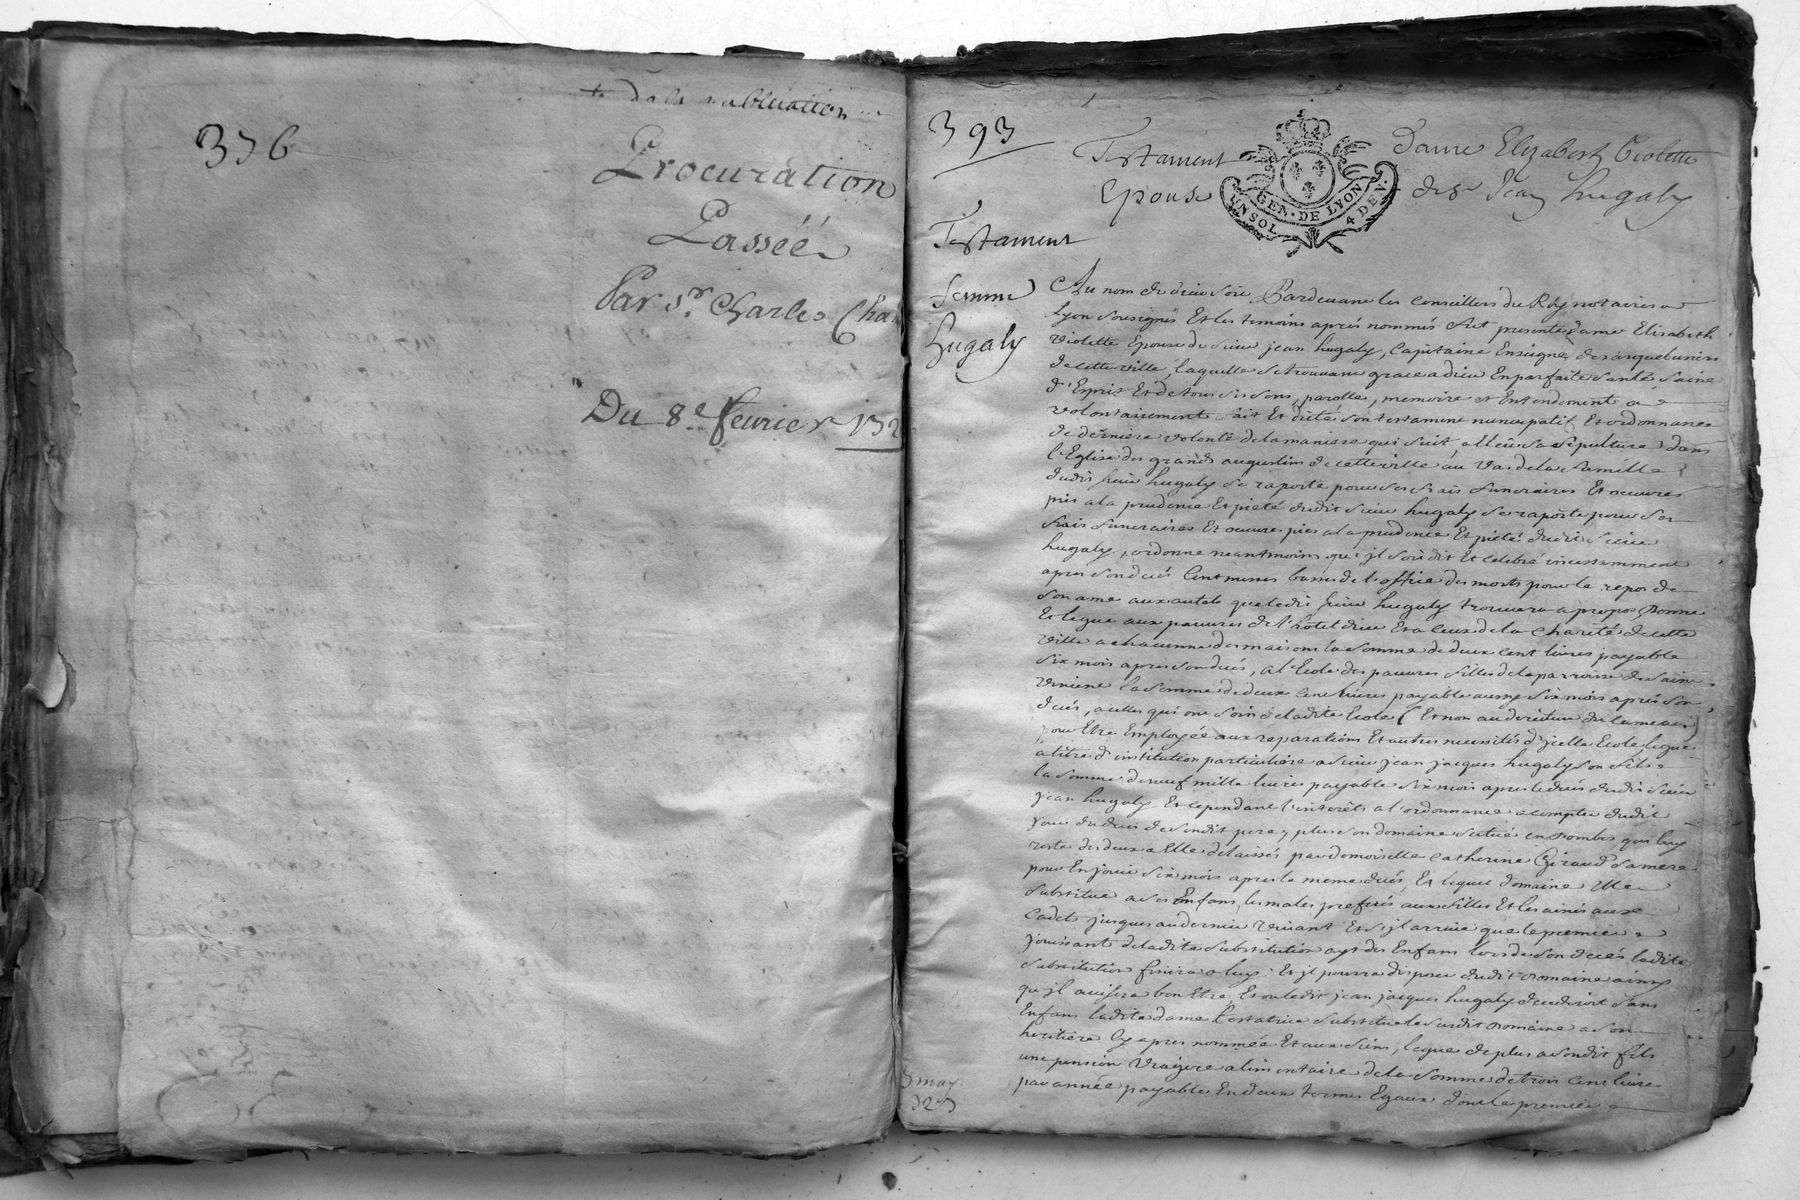 de la publication
376
Procuration
Passéé
Par Sr. Charles Cha
Du 8e. fevrier 172
393
Testament Dame Elizabeth Violette
Epouse de Sr Jean hugaly
GEN. DE LYON
UN SOL 4 DEN.
Testament
femme
hugaly
Au nom de dieu soit Pardevant les Conseillers du Roy notaires a
Lyon sousignés Et les temoins aprés nommés fut presente dame Elisabeth
violette Epouse de sieur jean hugaly, Capitaine Enseigne des arquebusiers
de cette ville, laquelle se trouvant grace a dieu En parfaite santé, saine
d'Esprit Et de tous ses sens, parolle, memoire et Entendement a
volontairement fait Et dicté son testament nuncupatif Et ordonnance
de derniere volonté de la maniere qui suit, a Elleu sa sepulture dans
l'Eglise des grands augustins de cette ville au vas de la famille
dudit sieur hugaly se raporte pour ses frais funeraires Et oeuvres
pies a la prudence Et pieté dudit sieur hugaly se raporte pour ses
frais funeraires Et oeuvre pies a la prudence Et pieté dudit sieur
hugaly, ordonne neantmoins qu'jl soit dit Et celebré incessamment
apres son decés Cent messes basses de l'office des morts pour le repos de
son ame aux autels que ledit sieur hugaly trouvera a propos, Donne
Et legue aux pauvres de l'hotel dieu Et a ceux de la Charité de cette
ville a chacune des maisons la somme de deux cent livres payable
six mois apres son decés, a l'Ecole des pauvres filles de la parroisse de saint
vincent la somme de deux cent livres payable aussy six mois aprés son
decés, a celles qui ont soin de ladite Ecole (Et non au directeur)
pour Etre Employée aux reparations Et autres necessités d'jcelle Ecole, legue
a titre d'institution particuliere a sieur jean jacques hugaly son fils
la somme de neuf mille livres payable six mois apres le decés dudit sieur
jean hugaly Et cependant l'interêt a l'ordonnance a compter dudit
jour du decés de sondit pere, plus son domaine scitué en Dombes, qui luy
reste des deux a Elle delaissés par demoiselle Catherine Giraud sa mere
pour En jouir six mois apres le meme decés, Et lequel domaine Elle
substitue a ses Enfans, les males preferés aux filles Et les ainés aux
Cadets jusques au dernier vivant Et s'jl arrive que le premier
jouissant de ladite substitution ayt des Enfans lors de son decés ladite
substitution finira a luy Et jl pourra disposer dudit domaine ainsy
qu'jl avisera bon Etre, Et ou ledit jean jacques hugaly decederoit sans
Enfans ladite dame testatrice substitue le susdit domaine a son
heritiere Cy apres nommée Et aux siens, legue de plus a sondit fils
une pension viagere alimentaire de la somme de trois cent livres
par année payable En deux termes Egaux dont le premier
3 may